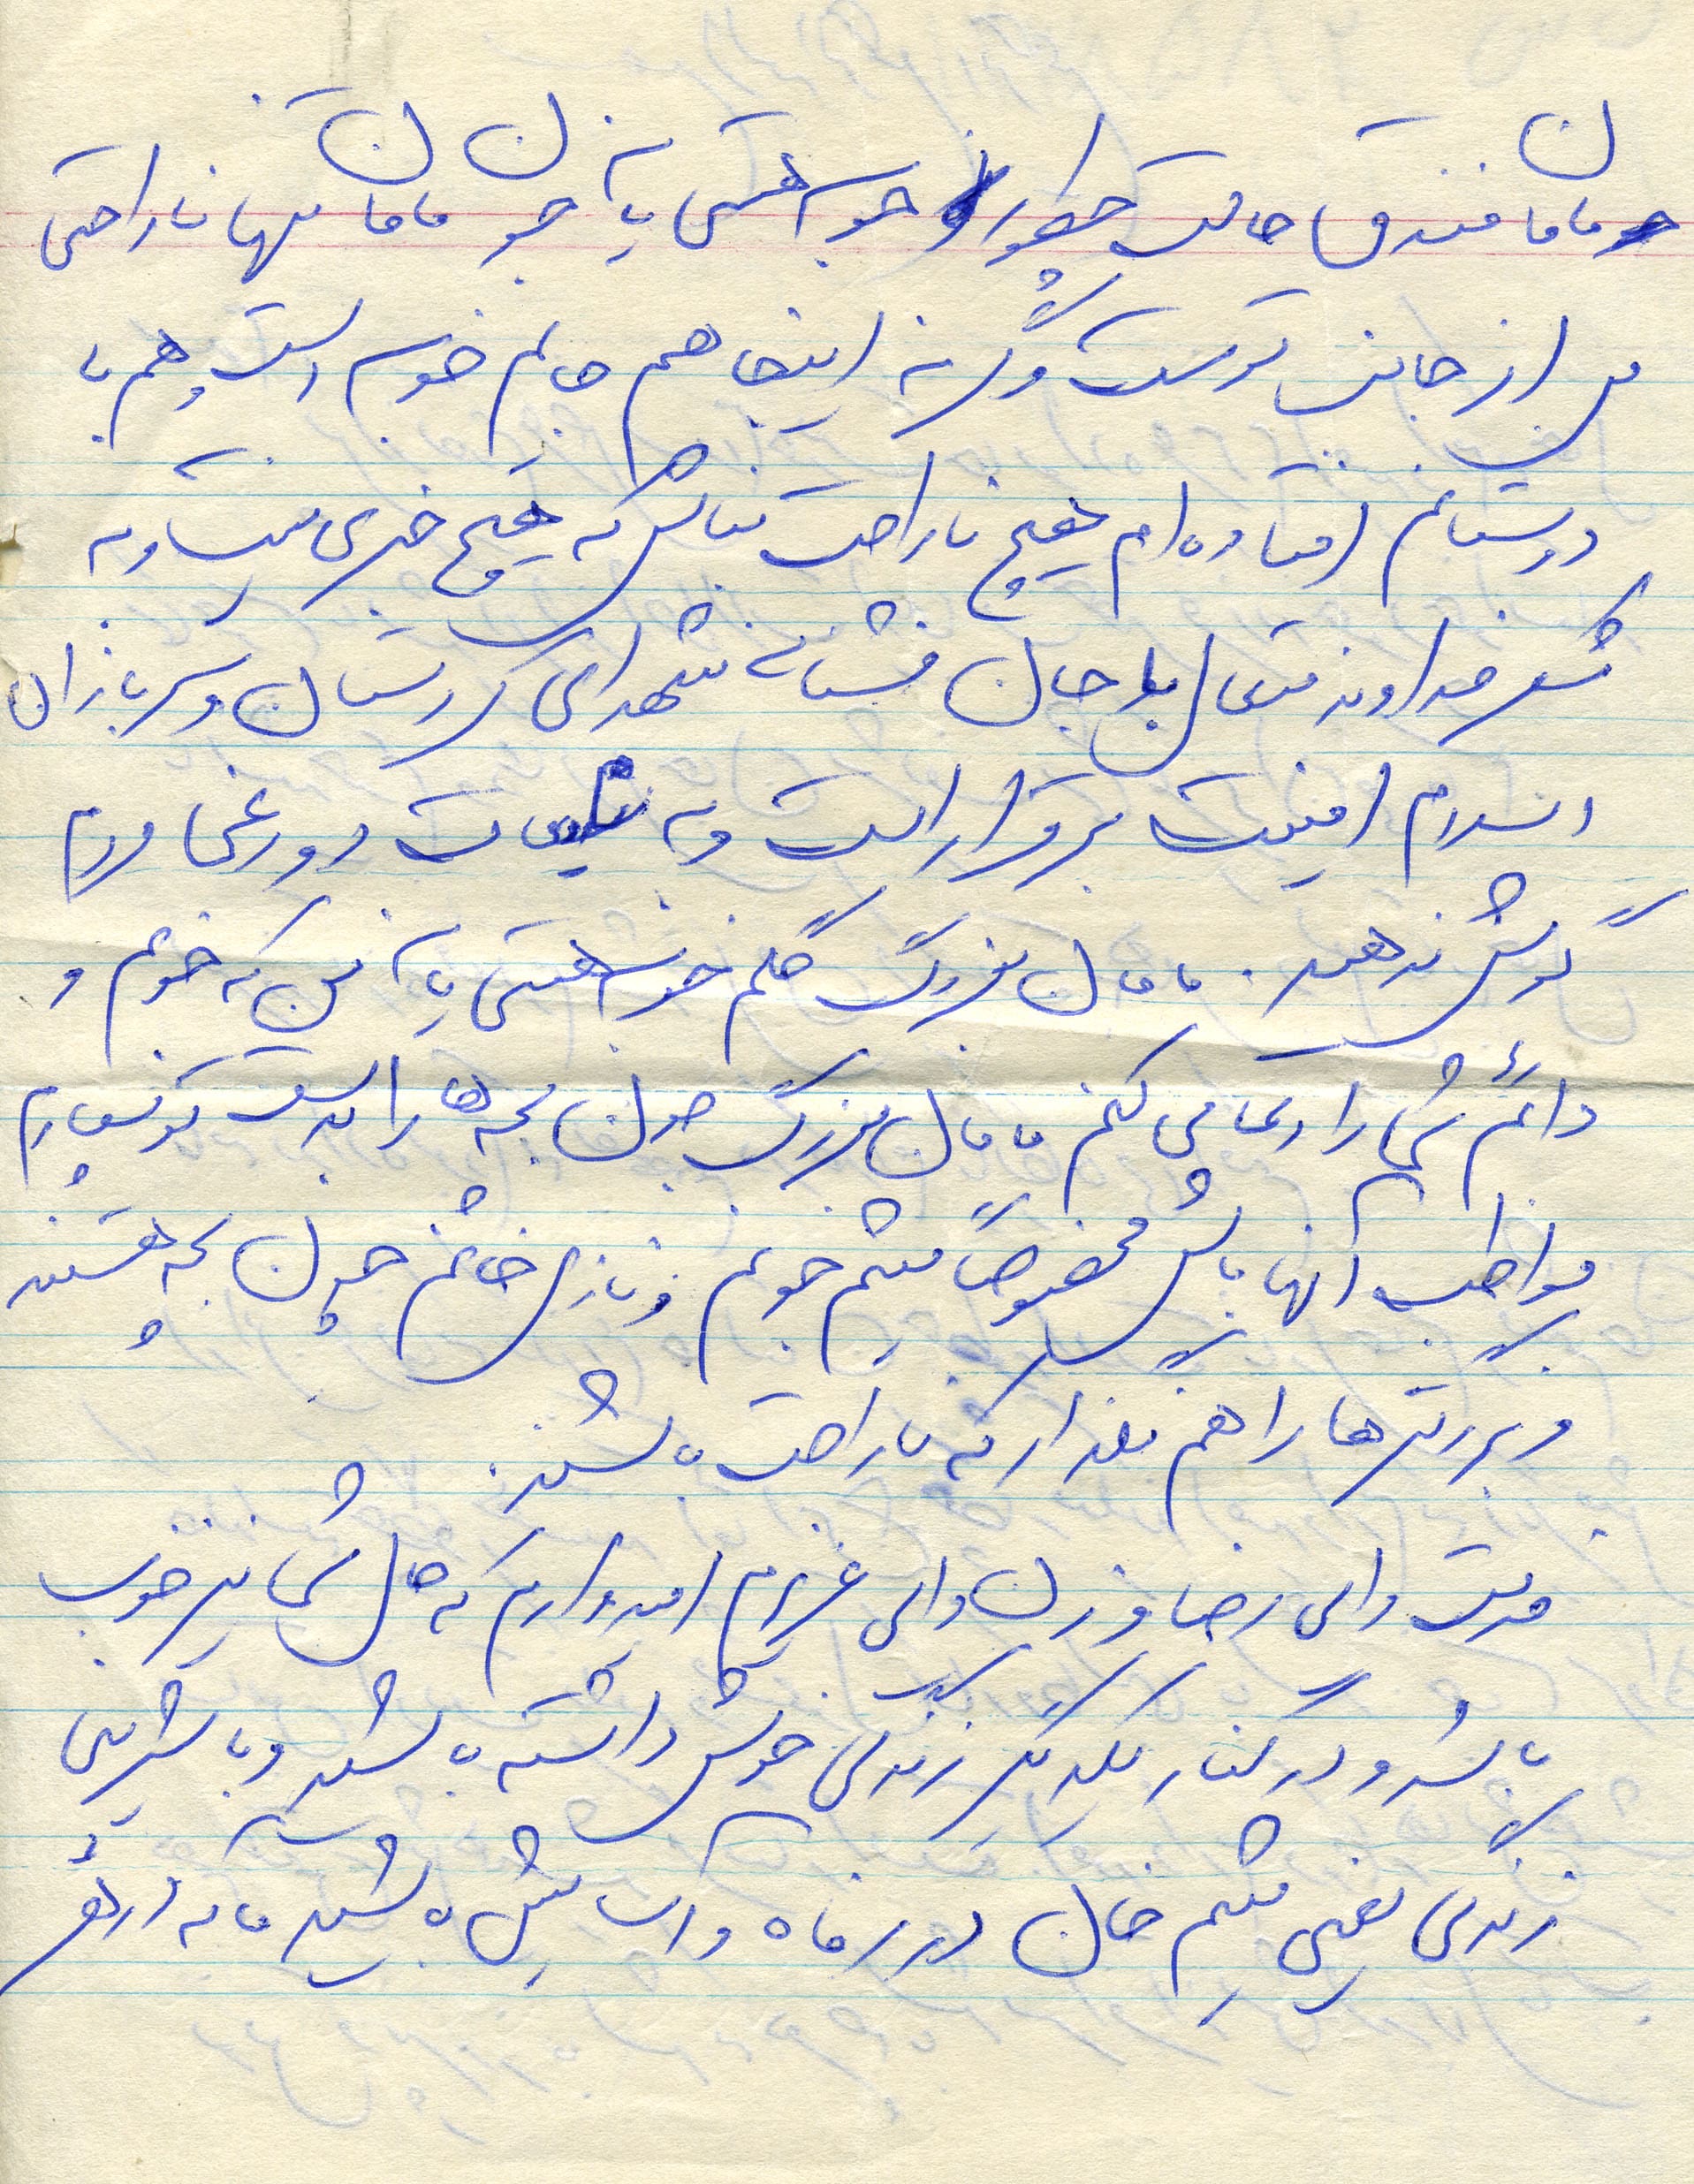 مامان فندق حالت چطور خوب هستی یا نه جون مامان تنها ناراحتی
من از جانب توست وگرنه اینجا هم حالم خوب است و هم با
دوستانم افتاده‌ام هیچ ناراحت نباش که هیچ خبری نیست و به
شکر خداوند متعال با جان فشانی شهدای کردستان و سربازان
اسلام امنیت برقرار است و به شایعات دورغی مردم
گوش ندهید. مامان بزرگ گلم خوب هستی یا نه من که خوبم و
دائم شما را دعا می کنم مامان بزرگ جون بچه ها را بدست تو سپارم
مواظب آنها باش مخصوصاً میثم جونم و نازی خانم چون بچه هستند
و بزرگترها را هم نگذار که ناراحت باشند.
خدمت دائی رضا و زن دائی عزیزم امیدوارم که حال شما نیز خوب
باشد و در کنار یکدیگر زندگی خوش داشته باشید و با شیرینی
زندگی یعنی میثم خان در رفاه و آسایش باشید